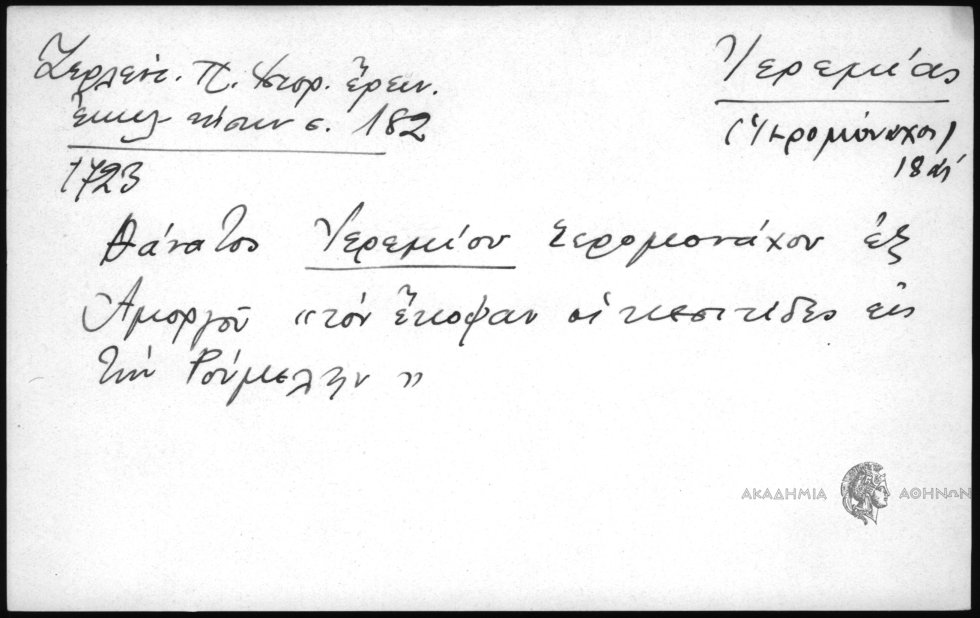 Ζερλέντ. Π. Ἱστορ. ἔρευν.
ἐκκλ νήσων σ. 182
1723
Ἱερεμίας
(Ἱερομόναχος)
18 αἰ
Θάνατος Ἱερεμίου ἱερομονάχου ἐξ
Ἀμοργοῦ "τόν ἔκοψαν οἱ
εἰς
τήν Ρούμελην"
ΑΚΑΔΗΜΙΑ ΑΘΗΝΩΝ